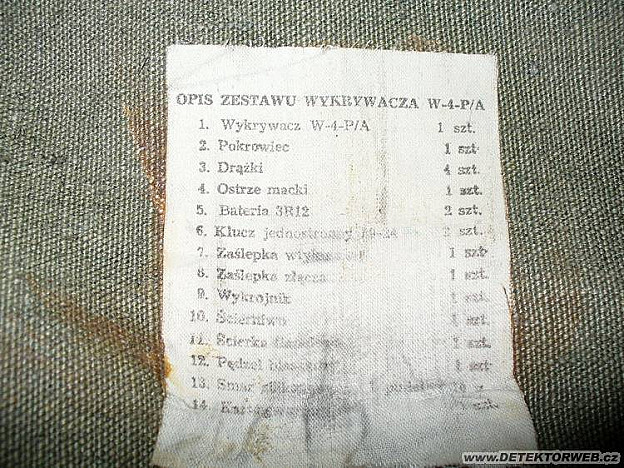 OPIS ZESTAWU WYKRYWACZA W-4-P/A
1. Wykrywacz W-4-P/A 1 szt.
2. Pokrowiec 1 szt
3. Drążki 4 szt.
4. Ostrze macki 1 szt.
5. Bateria 3R12 2 szt.
6. Klucz jednostronny szt.
7. Zaślepka 1 szt
8. Zaślepka złącza 1 szt.
9. Wykrojnik 1 szt.
10. Ścierniwo 1 szt.
11. Ścierka 1 szt.
12. Pędzel 1 szt
13. Smar
14. szt.
www.DETEKTORWEB.cz